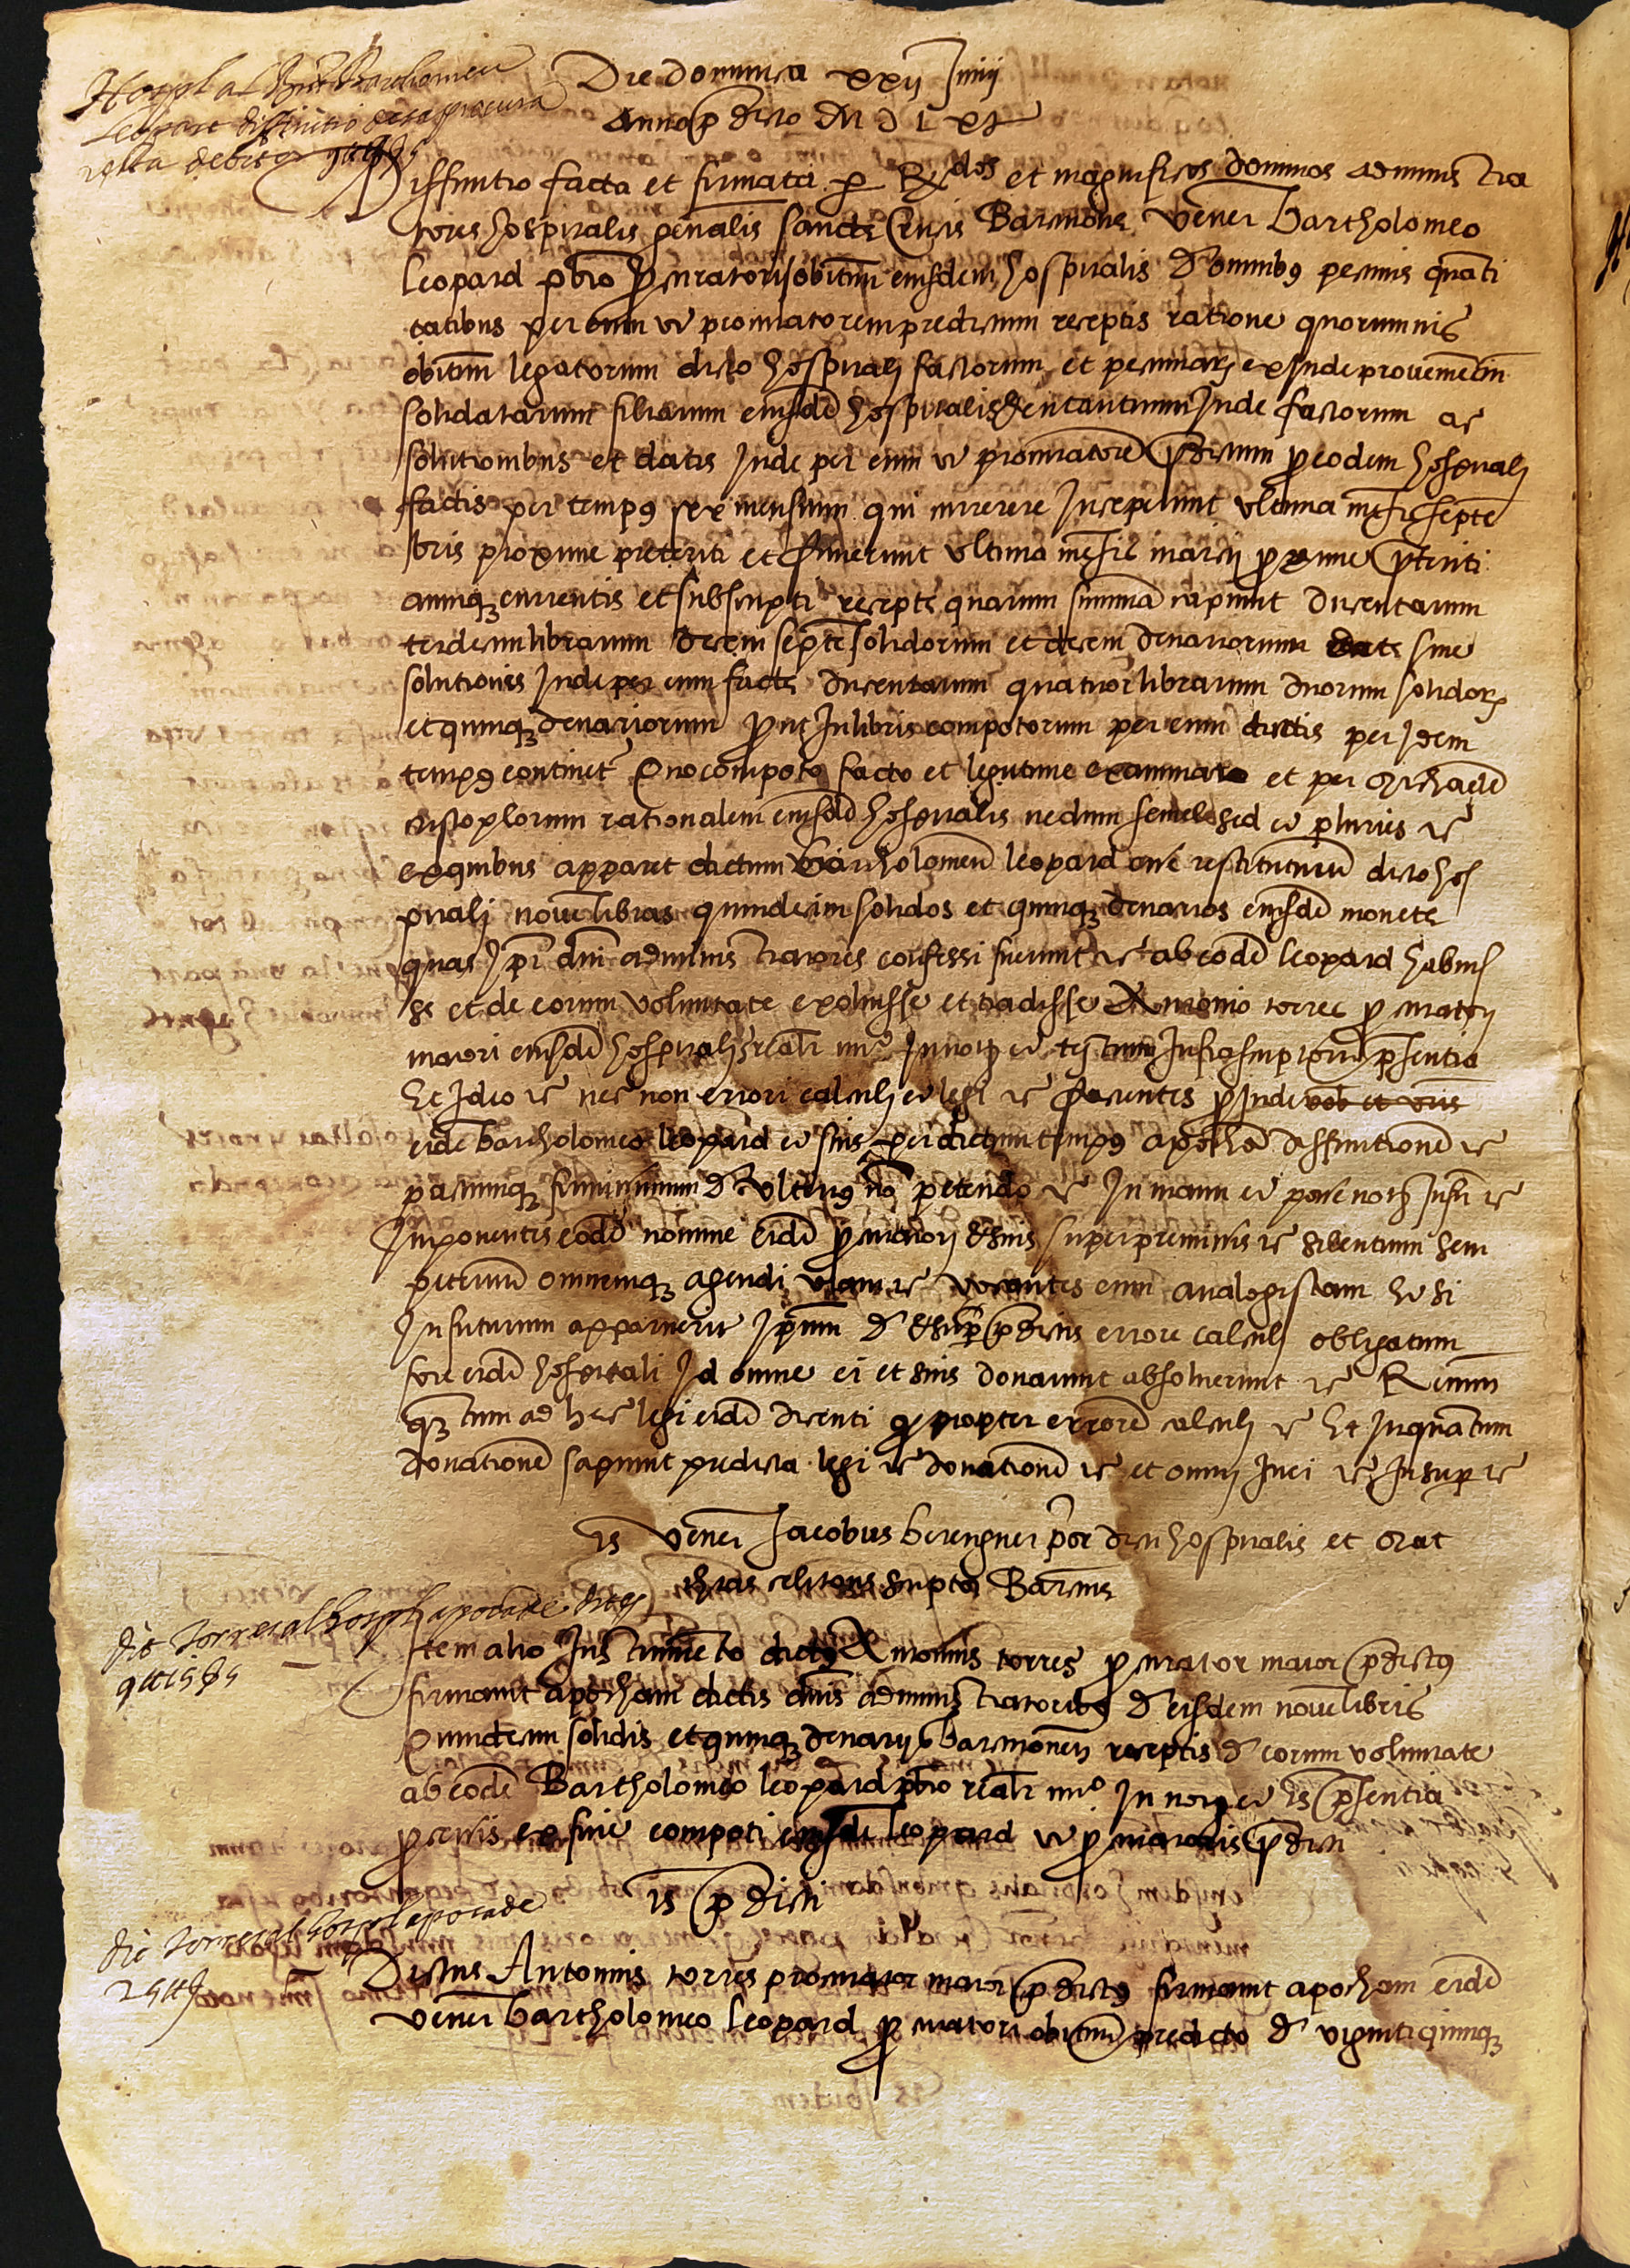 Die dominica xxij Junij
Anno p̄dicto M D L xj
Hospl al Bartholomeu
Leopart diffinitio procura
resta
Diffinitio facta et firmata p Rdos et magnificos dominos adminis tra
tores hospitalis gen̄alis sancte Crucis Barcinone vener Bartholomeo
Leopard pbro procuratori obituum eiusdem hospitalis de omnibus pecuniis quanti
tatibus per eum ut procuratorem predictum receptis ratione quorumuis
obituum legatorum dicto hospitali factorum et pecuniarum exinde prouenien
solidatarum filiarum eiusdē hospitalis encantuum Inde factorum ac
solutionibus et datis Inde per eum ut procuratorē predictum pro eodem hospitali
factis per tempus sex mensium qui currere Inceperunt ultima mensis septē
bris proxime preteriti et finierunt ultimo mensis marcij proxime preteriti
anniq currentis et subscripti recepte quarum summā capiunt ducentarum
terdecim librarum decem septē solidorum et decem denariorum date siue
solutiones Inde per eum facte ducentarum quatuor librarum duorum solidorum
et quinq denariorum prout In libris compotorum per eum dictis per Idem
tempus continet Quo compoto facto et legittime examinato et per Michaelē
cristoplorum rationalem eiusdē hospitalis nedum semel sed et pluries etc
ex quibus apparet dictum Bartholomeū leopard restituturū dicto hos
pitali nouē libras quindecim solidos et quinq denarios eiusdē monete
quas Ipsi dn̄i adminis tratores confessi fuerunt etc ab eodē leopard habuis
se et de eorum voluntate exoluisse et tradisse Antonio torres procuratori
maiori eiusdē hospitalis realr nuo In notrii et testium Infrascriptorum presentia
Et Ideo etc nec non errori calculi et legi etc facientes proinde vob et vris
eidē bartholomeo leopard et suis per dictum tempus apochā diffinitionē etc
pactumq firmissimum de ulterius no petendo etc In manu et posse notrii Infri etc
Imponentis eodē nomine eidē procuratori et suis super premissis etc silentium sem
piternū omnemq agendi viam etc vocantes eum analogistam Et si
In futurum apparuerit Ipsum de et super predictis errore calculi obligatum
fore eidē hospitali Id omne ei et suis donarunt absoluerunt etc Renun
q tum ad hec legi eidē dicenti q propter errorē calculi etc Et Inquantum
donationē sapiunt predicta legi etc donationē etc et omni Iuri etc Insuper etc
ts vener Jacobus berenguer prior dicti hospitalis et
scriptor Barcine
die torres al hospl apocade
9 lli 15 s 5
Item alio Instrumēto dictus Antonius torres procurator maior predictus
firmauit apocham dictis dn̄is adminis tratoribus de eisdem nouē libris
Quindecim solidis et quinq denarijs barcinonen̄ receptis de eorum voluntate
ab eodē Bartholomeo leopard pbro realr nuo In notrii et ts presentia
processis ex fine compoti eiusdē leopard ut procuratoris predicti
ts p̄dicti
die torres al hospl apocade
25 ll
Dictus Antonius torres procurator maior predictus firmauit apocham eidē
vener bartholomeo leopard procuratori obituum predicto de vigintiquinq